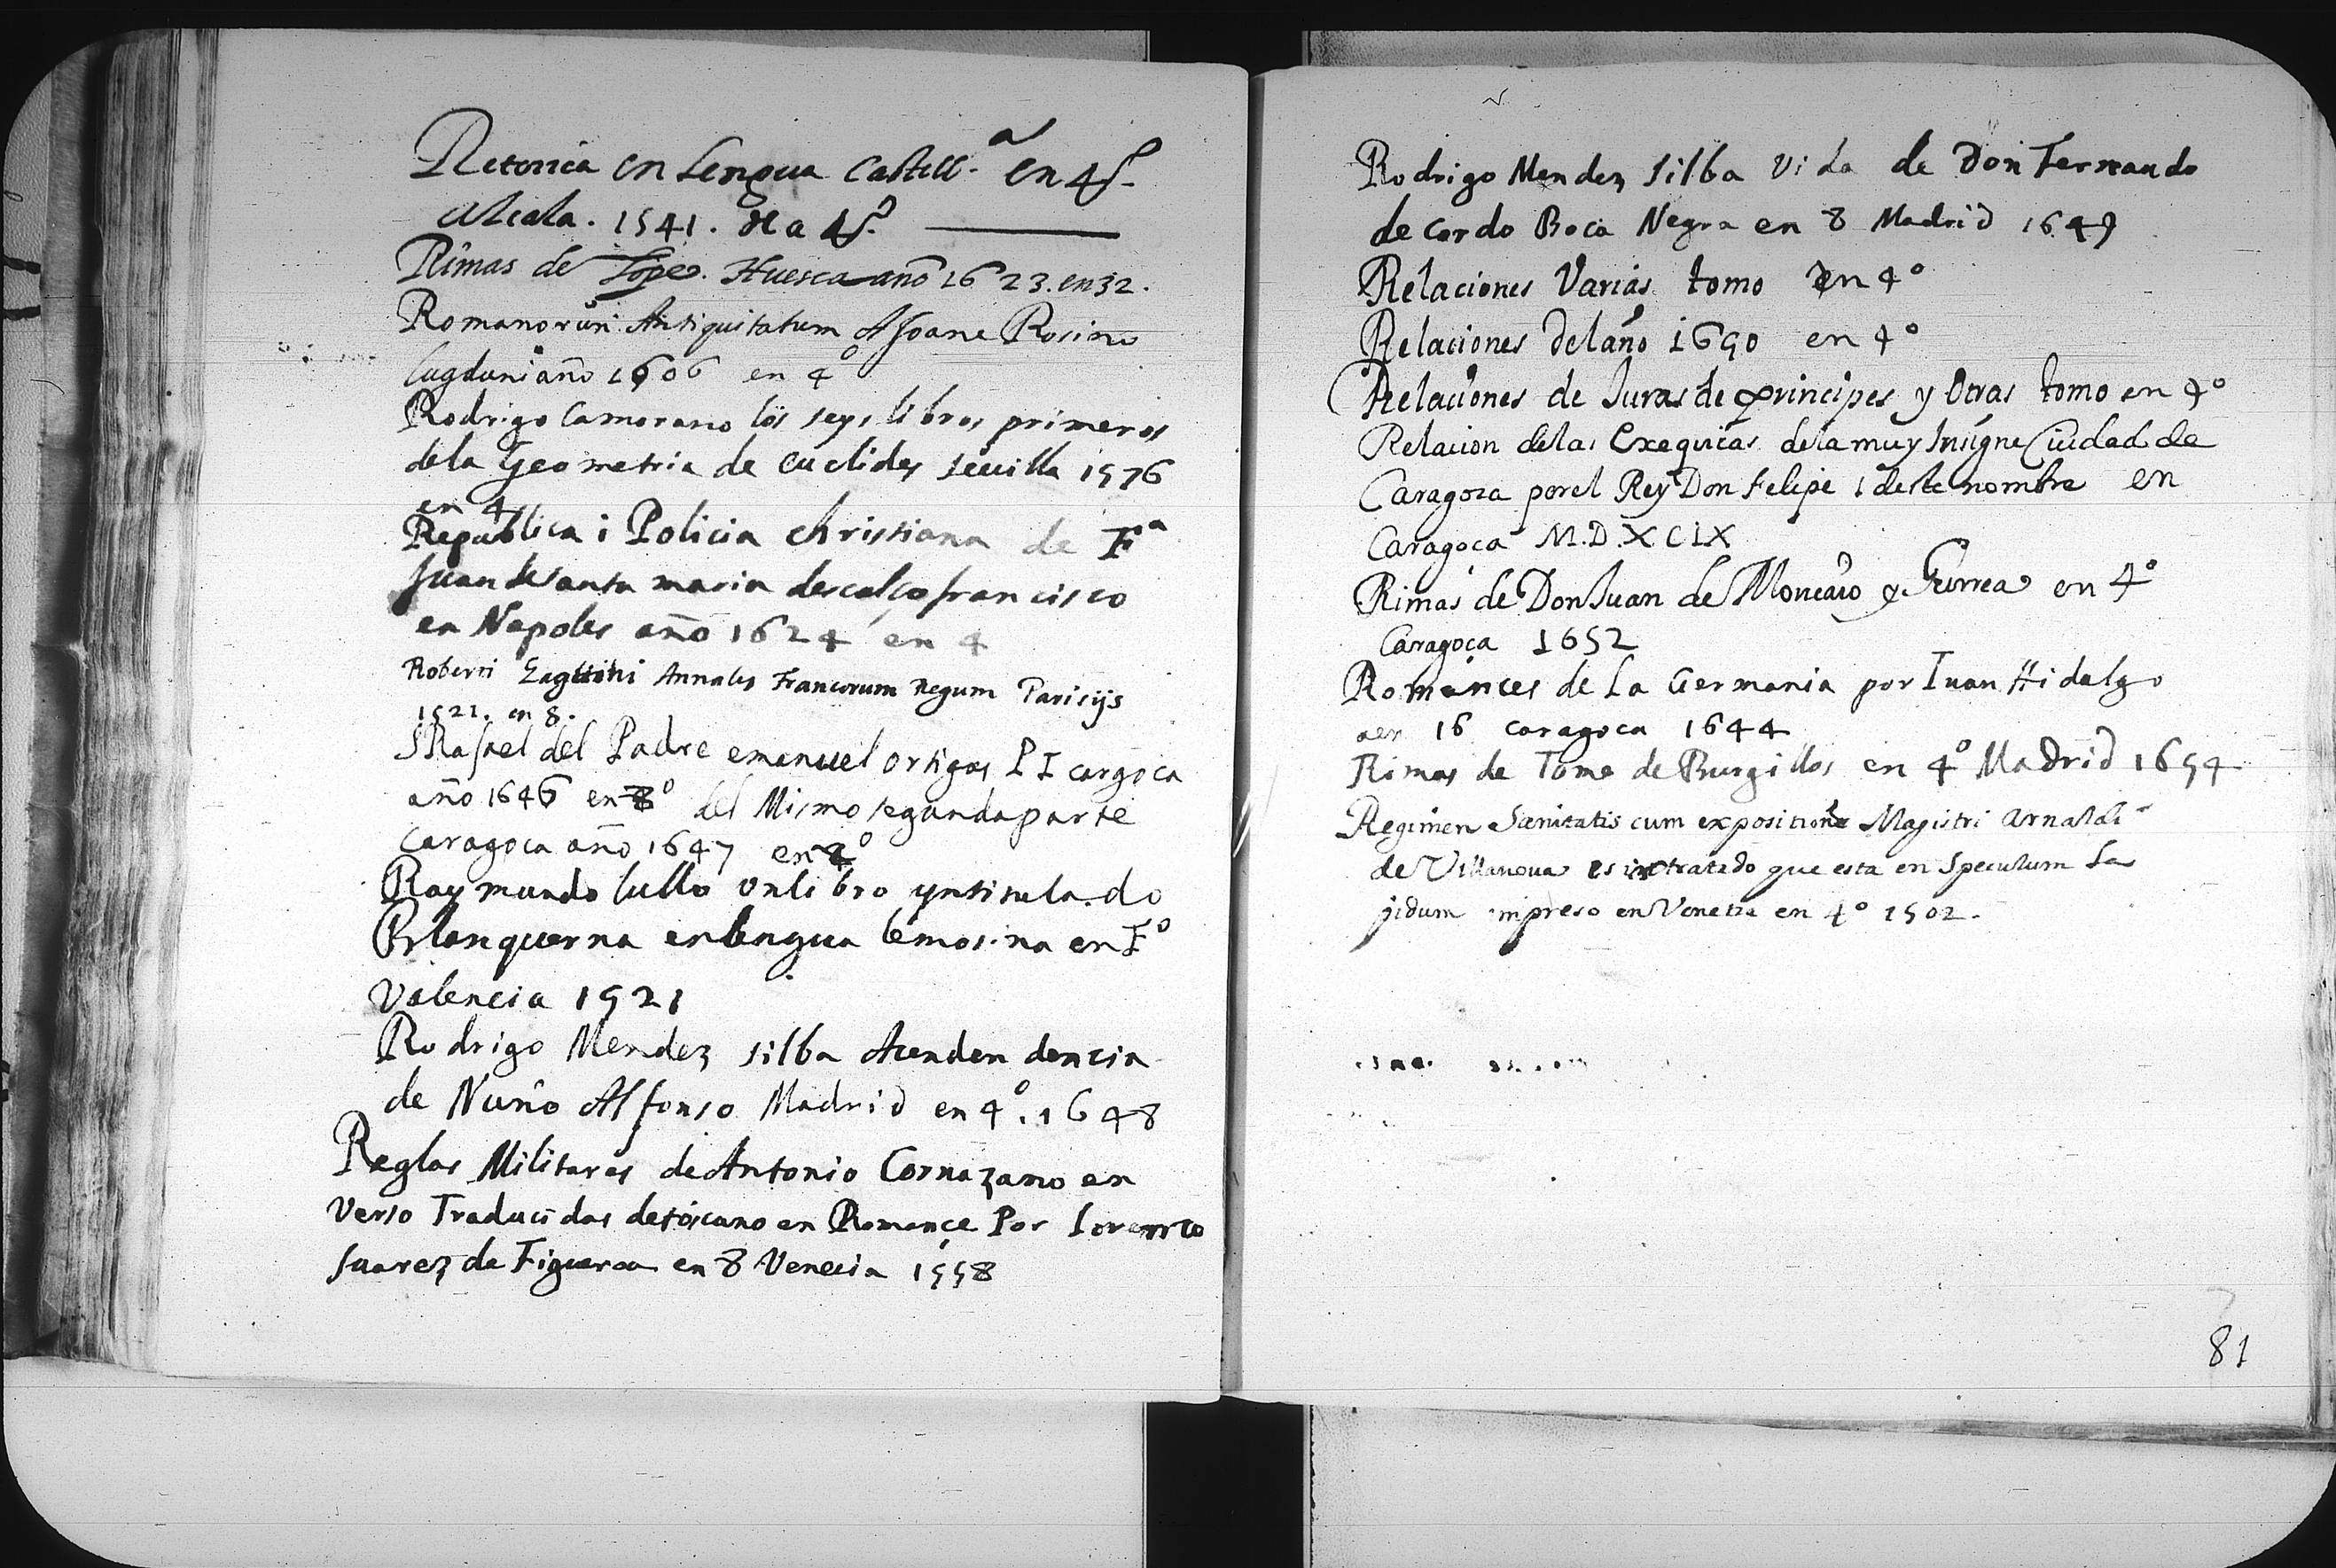 Retorica en Lengua Castell.a en 4o.
Alcala. 1541.
Rimas de Lope. Huesca año 1623. en 32.
Romanorum Antiquitatum A Joane Rosino
lugduni año 1606 en 4o
Rodrigo Camorano los seys libros primeros
dela Geometria de euclides seuilla 1576
en 4
Republica i Policia christiana de Fa
Juan de santa maria descalço francisco
en Napoles año 1624 en 4
Roberti Annales Francorum Regum Parisijs
1521. en 8.
S Rafael del Padre emanuel ortigas P I cargoca
año 1646 en 8o del Mismo segunda parte
Caragoca año 1647 en
Raymundo lullo vn libro yntitulado
Blanquerna en lengua lemosina en Fo
Valencia 1521
Rodrigo Mendez silba Acendendencia
de Nuño Alfonso Madrid en 4o. 1648
Reglas Militares de Antonio Cornazano en
Verso Traducidas de toscano en Romançe Por Lorenzo
suarez de Figueroa en 8 Venecia 1558
Rodrigo Mendez silba vida de Don Fernando
de Cordo Boca Negra en 8 Madrid 1649
Relaciones Varias tomo en 4o
Relaciones del año 1690 en 4o
Relaciones de Juras de principes y Otras tomo en 4o
Relacion de las Exequias de la muy Insigne Ciudad de
Caragoza por el Rey Don Felipe 1 deste nombre en
Caragoça M.D.XCIX
Rimas de Don Juan de Moncaio y Gurrea en 4o
Caragoça 1652
Romances de la Germania por Iuan Hidalgo
en 16 caragoca 1644
Rimas de Tome de Burgillos en 4o Madrid 1654
Regimen Sanitatis cum expositione Magistri Arnaldi
de Villanoua es tratado que esta en Speculum La
pidum impreso en Venetia en 4o 1502.
81